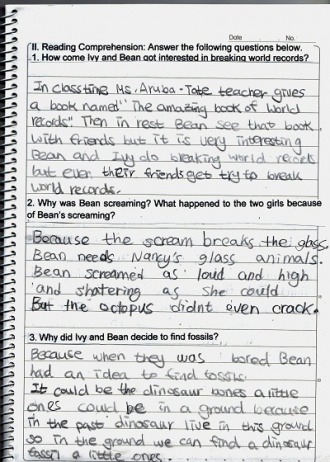 Date No.
II. Reading Comprehension: Answer the following questions below.
1. How come Ivy and Bean got interested in breaking world records?
In classtime Ms. Aruba-Tate teacher gives
a book named "The amazing book of World
records" Then in rest Bean see that book
with friends but it is very interesting
Bean and Ivy do breaking world records
but ever their friends get try to break
world records.
2. Why was Bean screaming? What happened to the two girls because
of Bean's screaming?
Because the scream breaks the glass.
Bean needs Nancy's glass animals.
Bean screamed as loud and high
and shatering as she could
But the octopus didnt even crack.
3. Why did Ivy and Bean decide to find fossils?
Because when they was bored Bean
had an idea to find fossils.
It could be the dinosaur bones a little
ones could be in a ground because
in the past dinosaur live in this ground
so in the ground we can find a dinosaur
fossil a little ones.